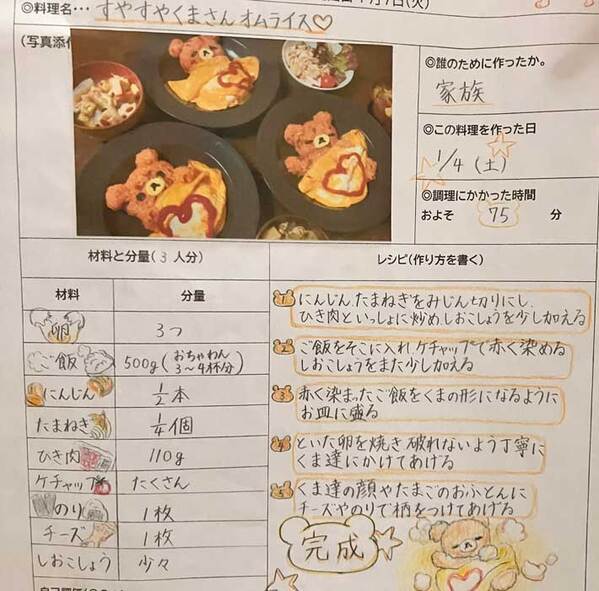 ◎料理名… すやすやくまさんオムライス♡
月7日(火)
(写真添
◎誰のために作ったか。
家族
◎この料理を作った日
1/4(土)
◎調理にかかった時間
およそ 75 分
材料と分量(3人分)
レシピ(作り方を書く)
材料 分量
卵 3つ
ご飯 500g(おちゃわん3〜4杯分)
にんじん 1/2本
たまねぎ 1/4個
ひき肉 110g
ケチャップ たくさん
のり 1枚
チーズ 1枚
しおこしょう 少々
1 にんじん、たまねぎをみじん切りにし、
ひき肉といっしょに炒め、しおこしょうを少し加える
2 ご飯をそこに入れ、ケチャップで赤く染める
しおこしょうをまた少し加える
3 赤く染まったご飯をくまの形になるように
お皿に盛る
4 といた卵を焼き破れないよう丁寧に
くま達にかけてあげる
5 くま達の顔やたまごのおふとんに
チーズやのりで柄をつけてあげる
完成